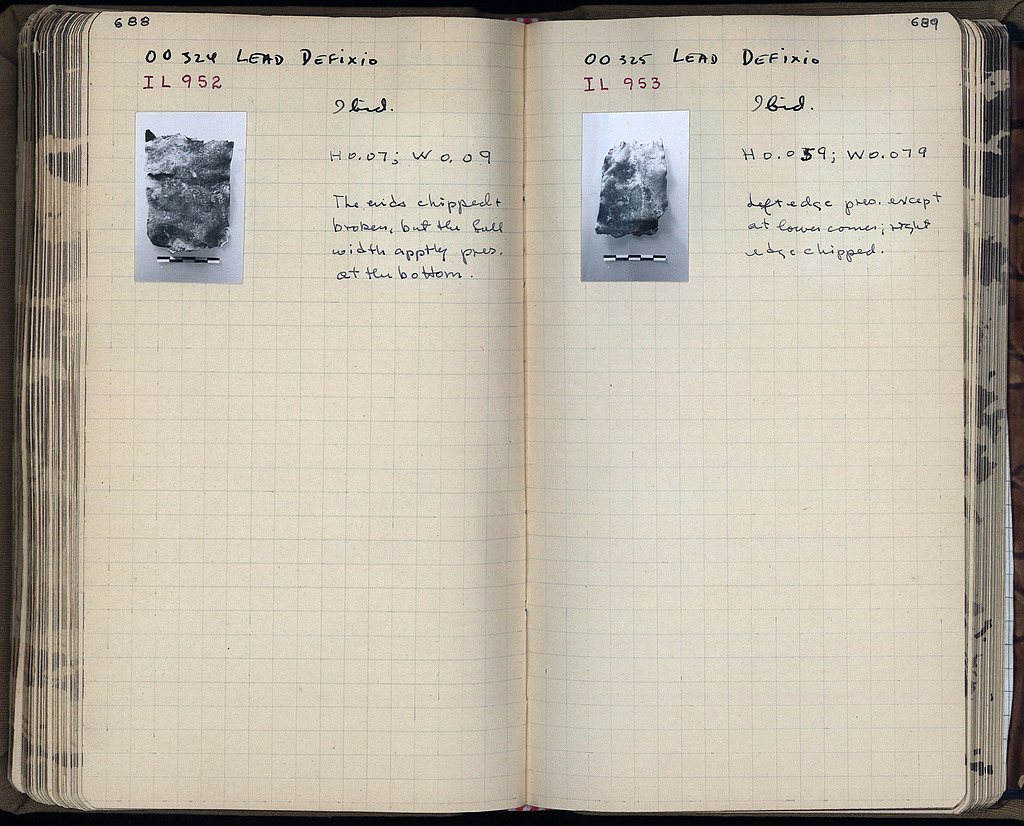 688
OO 324 LEAD DEFIXIO
IL 952
Ibid.
H 0.07; W 0.09
The ends chipped +
broken, but the full
width apptly pres.
at the bottom.
689
OO 325 LEAD DEFIXIO
IL 953
Ibid.
H 0.059; W 0.079
Left edge pres. except
at lower corner; right
edge chipped.